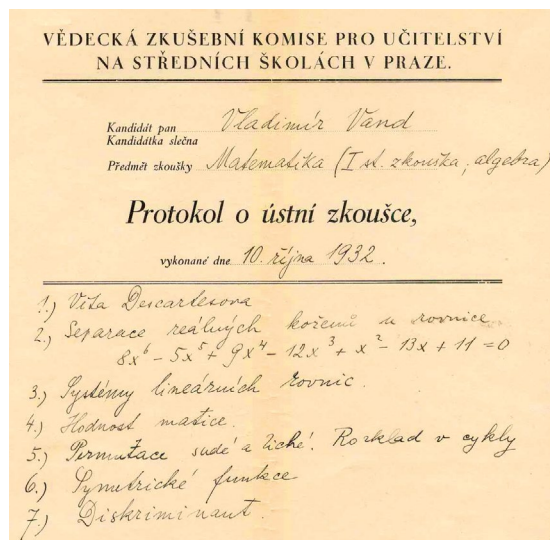 VĚDECKÁ ZKUŠEBNÍ KOMISE PRO UČITELSTVÍ
NA STŘEDNÍCH ŠKOLÁCH V PRAZE.
Kandidát pan Vladimír Vand
Kandidátka slečna
Předmět zkoušky Matematika (I st. zkouška, algebra)
Protokol o ústní zkoušce,
vykonané dne 10. října 1932.
1.) Věta Descartesova
2.) Separace reálných kořenů u rovnice
8x⁶ - 5x⁵ + 9x⁴ - 12x³ + x² - 13x + 11 = 0
3.) Systémy lineárních rovnic.
4.) Hodnost matice.
5.) Permutace sudé a liché. Rozklad v cykly
6.) Symetrické funkce
7.) Diskriminant.